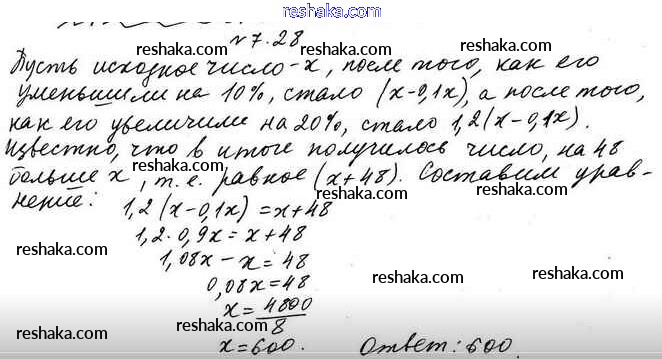 reshaka.com
№7.28
reshaka.com reshaka.com reshaka.com
Пусть исходное число - x, после того, как его
уменьшили на 10%, стало (x-0,1x), а после того,
reshaka.com reshaka.com reshaka.com
как его увеличили на 20%, стало 1,2(x-0,1x).
Известно, что в итоге получилось число, на 48
reshaka.com reshaka.com
больше x, т.е. равное (x+48). Составим урав-
reshaka.com
нение:
1,2(x-0,1x)=x+48
reshaka.com reshaka.com
1,2·0,9x=x+48
reshaka.com
1,08x-x=48
reshaka.com reshaka.com
0,08x=48
x=4800/8
reshaka.com reshaka.com reshaka.com
x=600. Ответ: 600.